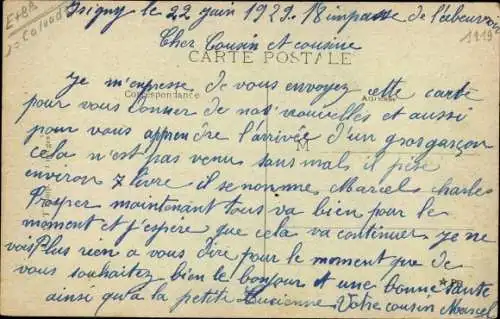 E+BR
= Calvados
Isigny le 22 juin 1929. 18 impasse de l'abeuvroir
1919
Cher Cousin et cousine
CARTE POSTALE
Je m'enpresse de vous envoyez cette carte
Correspondance
Adresse
pour vous donner de nos nouvelles et aussi
pour vous apprendre l'arrivée d'un gros garçon
M
cela n'est pas venu sans mal il pèse
environ 7 livre il se nomme Marcel Charles
Prosper maintenant tous va bien pour le
moment et j'espère que cela va continuer je ne
vois plus rien a vous dire pour le moment que de
vous souhaitez bien le bonjour et une bonne sante
ainsi qu'a la petite Lucienne Votre cousin Marcel